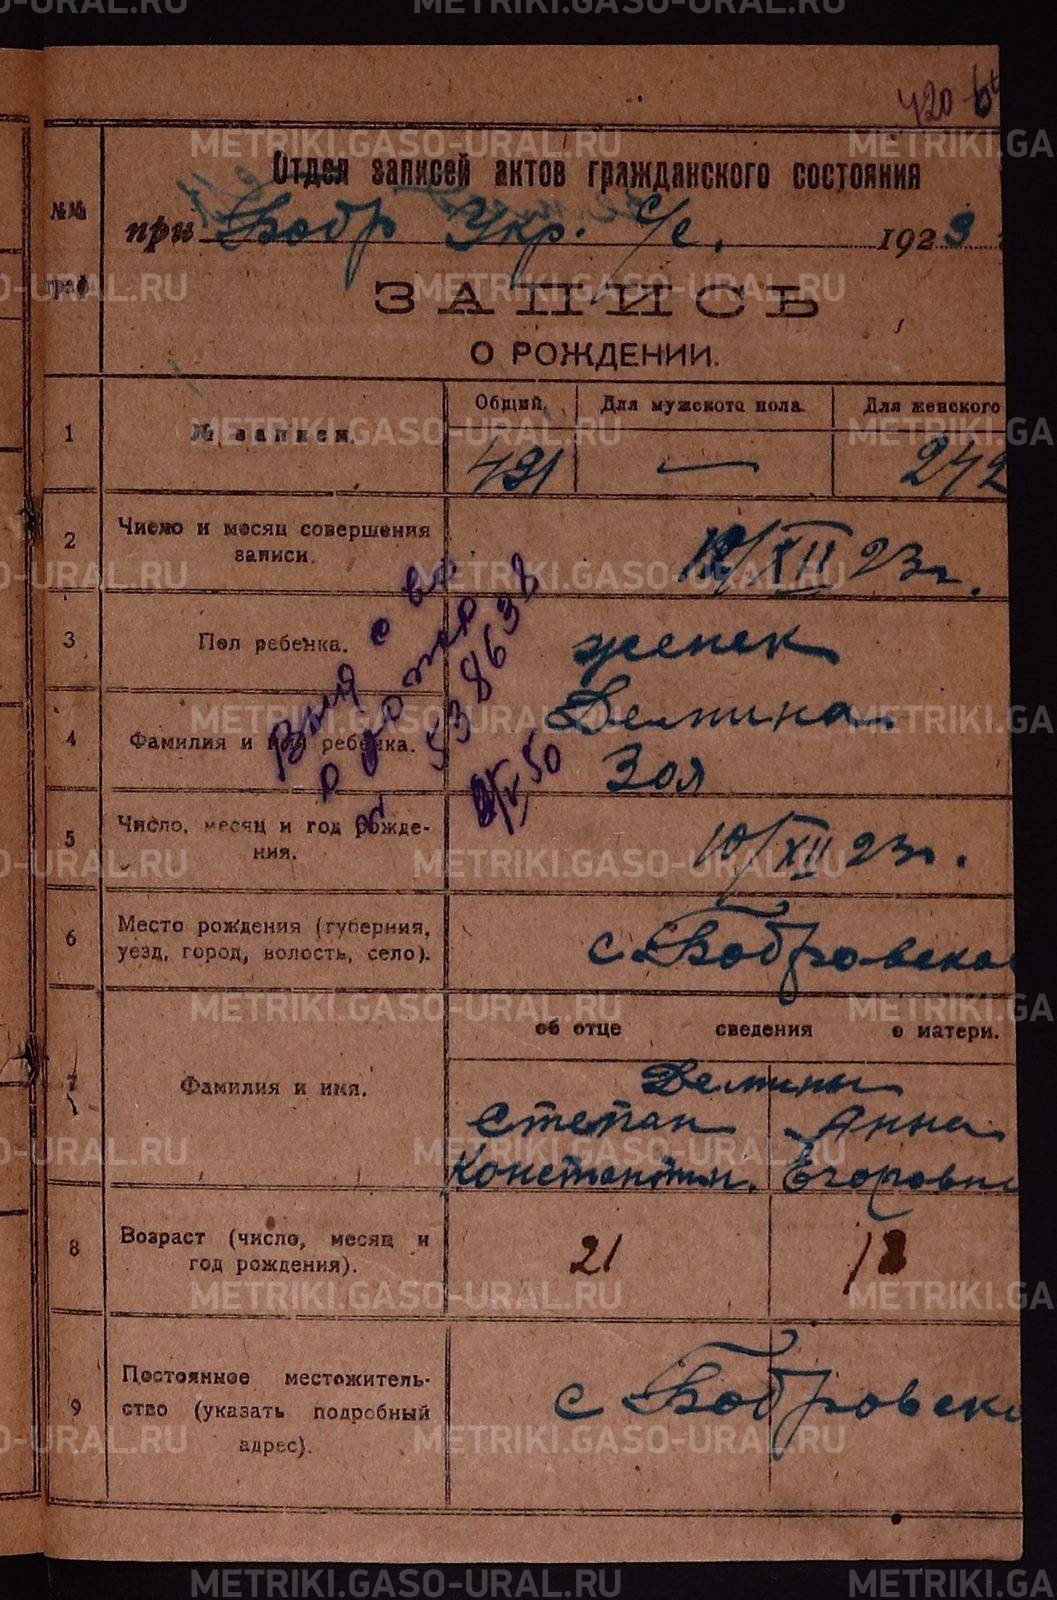 420 об
Отдел записей актов гражданского состояния
при Бобр Укр. с/с. 1923
№№ граф
ЗАПИСЬ
О РОЖДЕНИИ.
Общий. Для мужского пола. Для женского
1 № записи. 491 — 242
2 Число и месяц совершения
записи. 12/XII 23 г.
3 Пол ребенка. женск
4 Фамилия и имя ребенка. Демина
Зоя
5 Число, месяц и год рожде-
ния. 10/XII 23 г.
6 Место рождения (губерния,
уезд, город, волость, село). с. Бобровско
об отце сведения о матери.
7 Фамилия и имя. Демины
Степан Анна
Константин. Егоровн
8 Возраст (число, месяц и
год рождения). 21 18
9 Постоянное местожитель-
ство (указать подробный
адрес). с Бобровск
Выд с во
о рожд
538638
50
METRIKI.GASO-URAL.RU